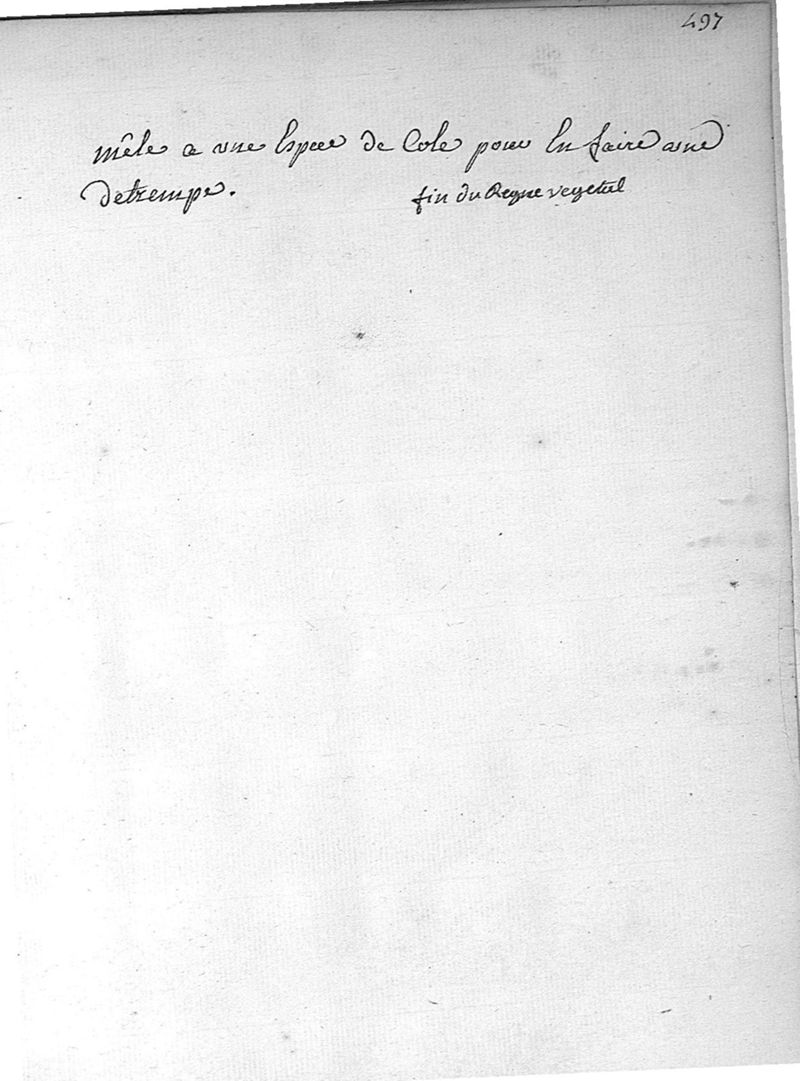 497
mêle a une Espece de Cole pour En faire une
detrempe.
fin du Regne vegetal